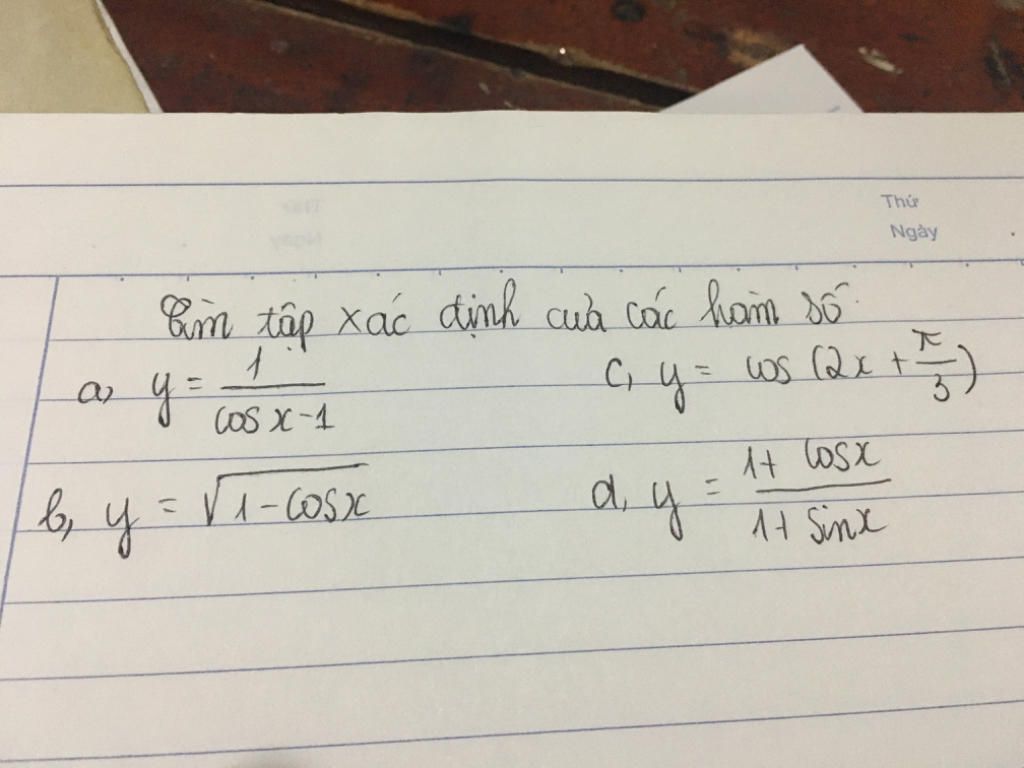 Thứ
Ngày
Tìm tập xác định của các hàm số
a, y = \frac{1}{cos x - 1}
c, y = cos (2x + \frac{π}{3})
b, y = \sqrt{1 - cosx}
d, y = \frac{1 + cosx}{1 + sinx}